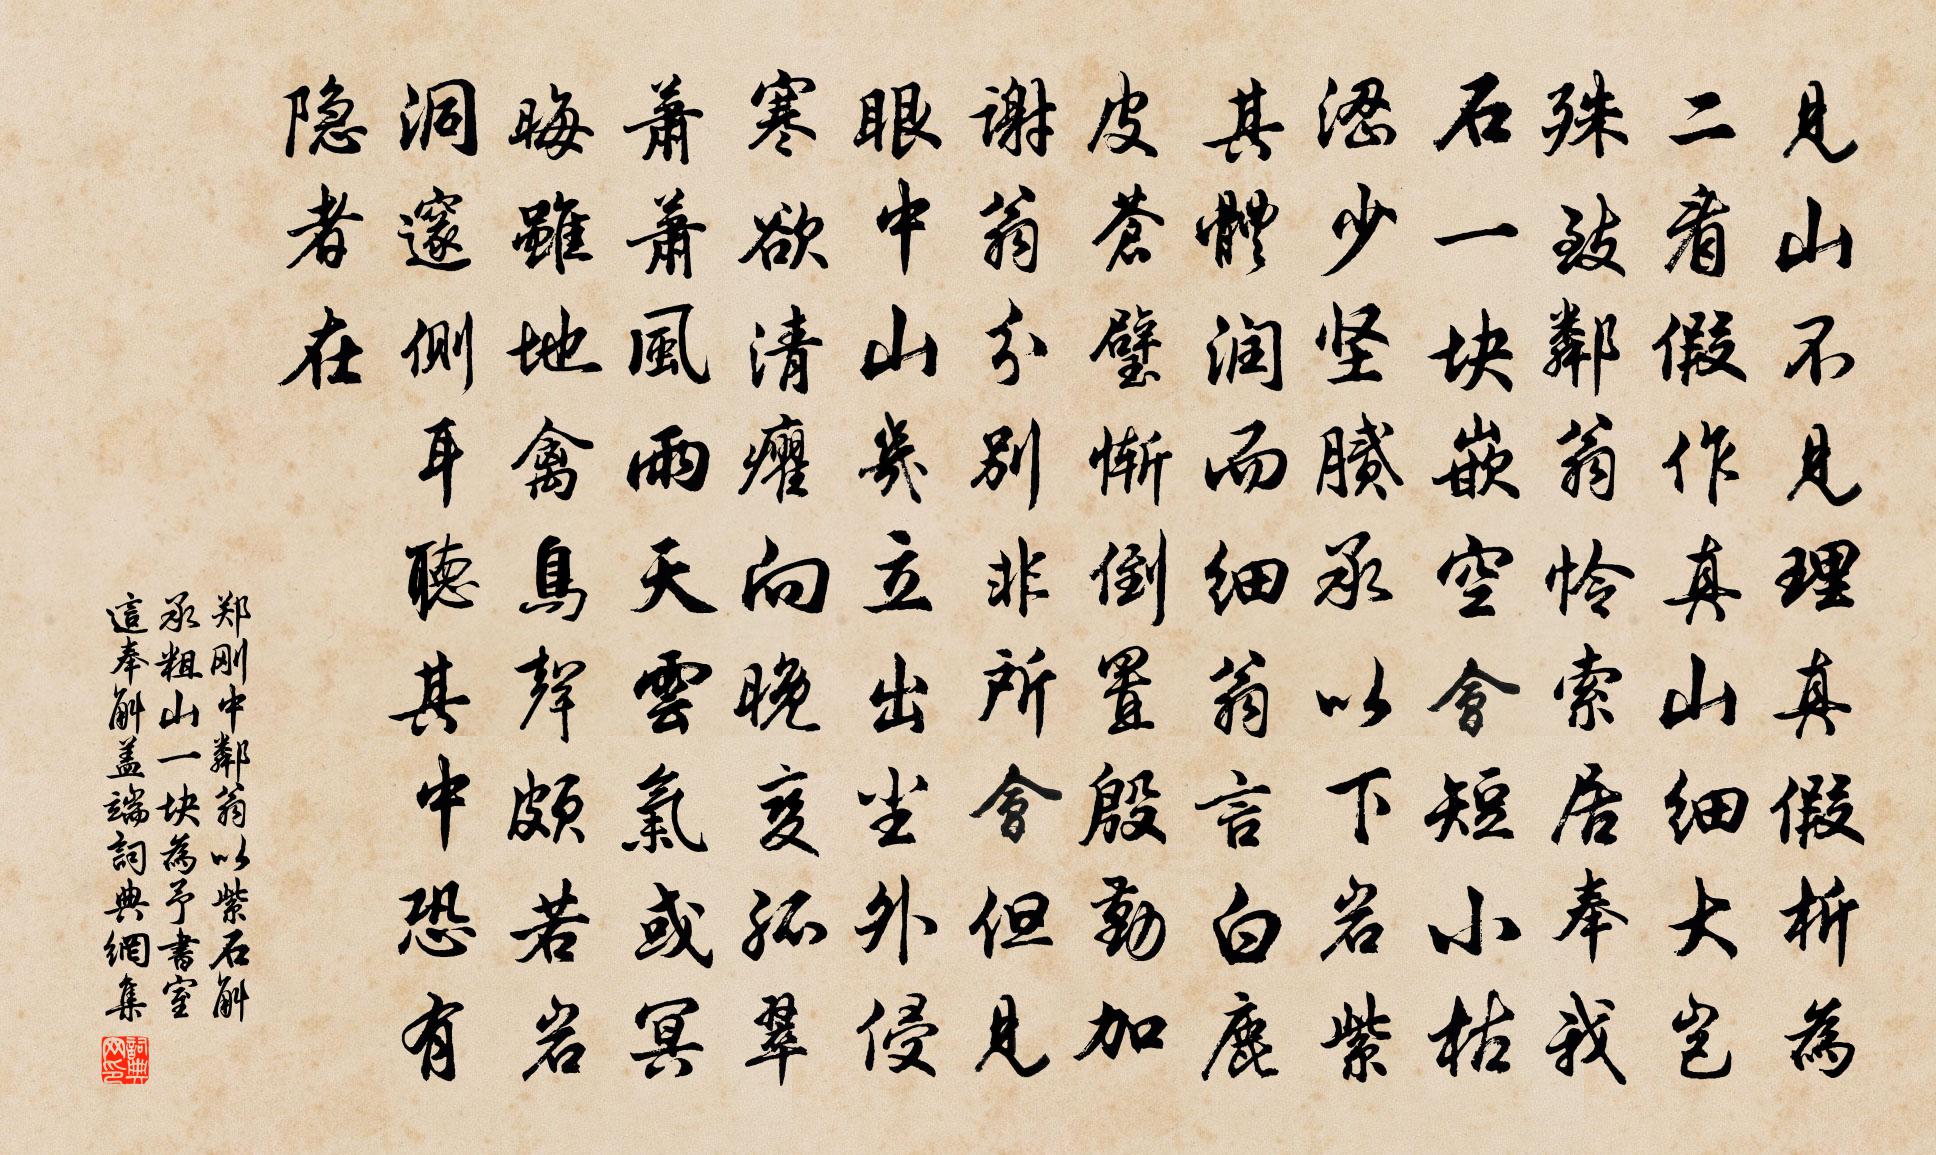 見山不見理真假析為
二看假作真山細大豈
殊致鄰翁怜索居奉我
石一块嵌空會短小枯
澀少坚膩承以下岩紫
其體润而細翁言白鹿
皮蒼璧惭倒置殷勤加
谢翁分别非所會但見
眼中山幾立出尘外侵
寒欲清癯向晚变孤翠
萧萧風雨天雲氣或冥
晦雖地禽鳥聲頗若岩
洞邃侧耳聽其中恐有
隐者在
郑刚中鄰翁以紫石斛
承粗山一块為予書室
這奉斛盖端詞典網集
詞典网印